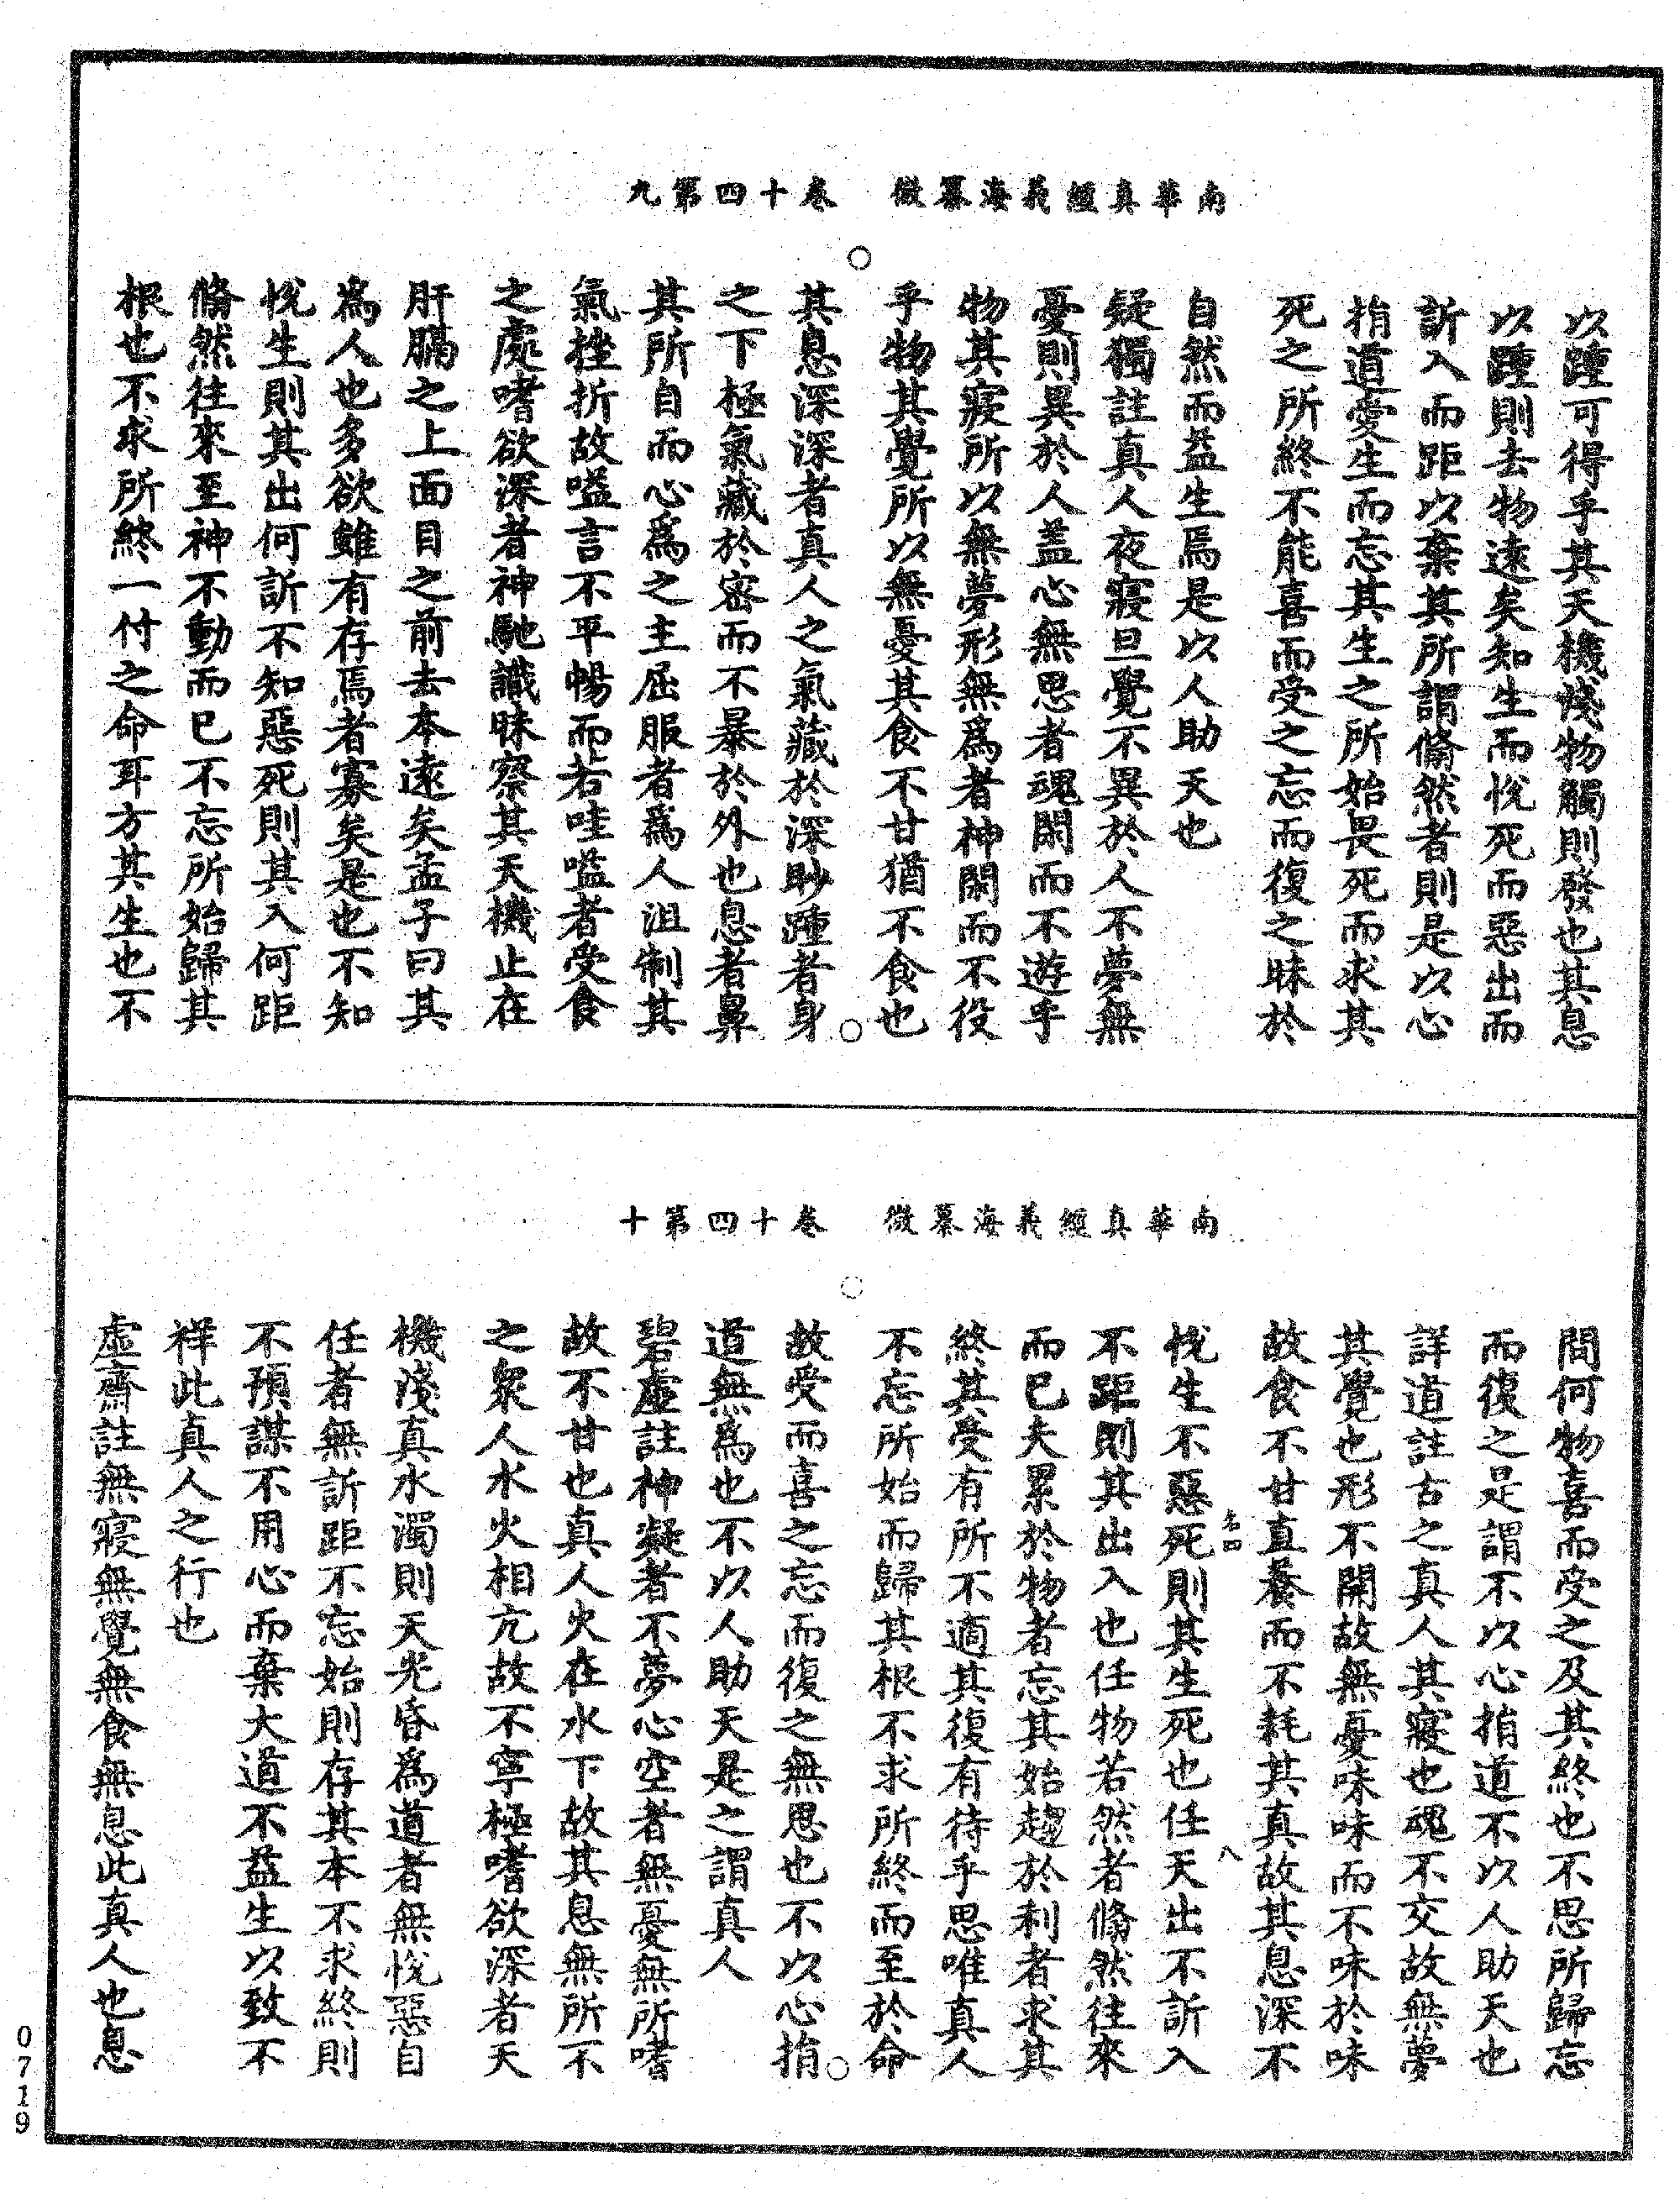 南華真經義海纂微　卷十四第九
以踵可得乎其天機淺物觸則發也其息
以踵則去物遠矣知生而悅死而惡出而
訢入而距以棄其所謂翛然者則是以心
捐道愛生而忘其生之所始畏死而求其
死之所終不能喜而受之忘而復之昧於
自然而益生焉是以人助天也
疑獨註真人夜寢旦覺不異於人不夢無
憂則異於人蓋心無思者魂閑而不遊乎
物其寢所以無夢形無為者神閑而不役
乎物其覺所以無憂其食不甘猶不食也
其息深深者真人之氣藏於深眇踵者身
之下極氣藏於密而不暴於外也息者鼻
其所自而心為之主屈服者為人沮制其
氣挫折故嗌言不平暢而若哇嗌者受食
之處嗜欲深者神馳識昧察其天機止在
肝膈之上面目之前去本遠矣孟子曰其
為人也多欲雖有存焉者寡矣是也不知
悅生則其出何訢不知惡死則其入何距
翛然往來至神不動而已不忘所始歸其
根也不求所終一付之命耳方其生也不
南華真經義海纂微　卷十四第十
問何物喜而受之及其終也不思所歸忘
而復之是謂不以心捐道不以人助天也
詳道註古之真人其寢也魂不交故無夢
其覺也形不開故無憂味味而不味於味
故食不甘直養而不耗其真故其息深不
名四　八
悅生不惡死則其生死也任天出不訢入
不距則其出入也任物若然者翛然往來
而已夫累於物者忘其始趨於利者求其
終其受有所不適其復有待乎思唯真人
不忘所始而歸其根不求所終而至於命
故受而喜之忘而復之無思也不以心捐
道無為也不以人助天是之謂真人
碧虛註神凝者不夢心空者無憂無所嗜
故不甘也真人火在水下故其息無所不
之眾人水火相亢故不寧極嗜欲深者天
機淺真水濁則天光昏為道者無悅惡自
任者無訢距不忘始則存其本不求終則
不預謀不用心而棄大道不益生以致不
祥此真人之行也
虛齋註無寢無覺無食無息此真人也息
0719